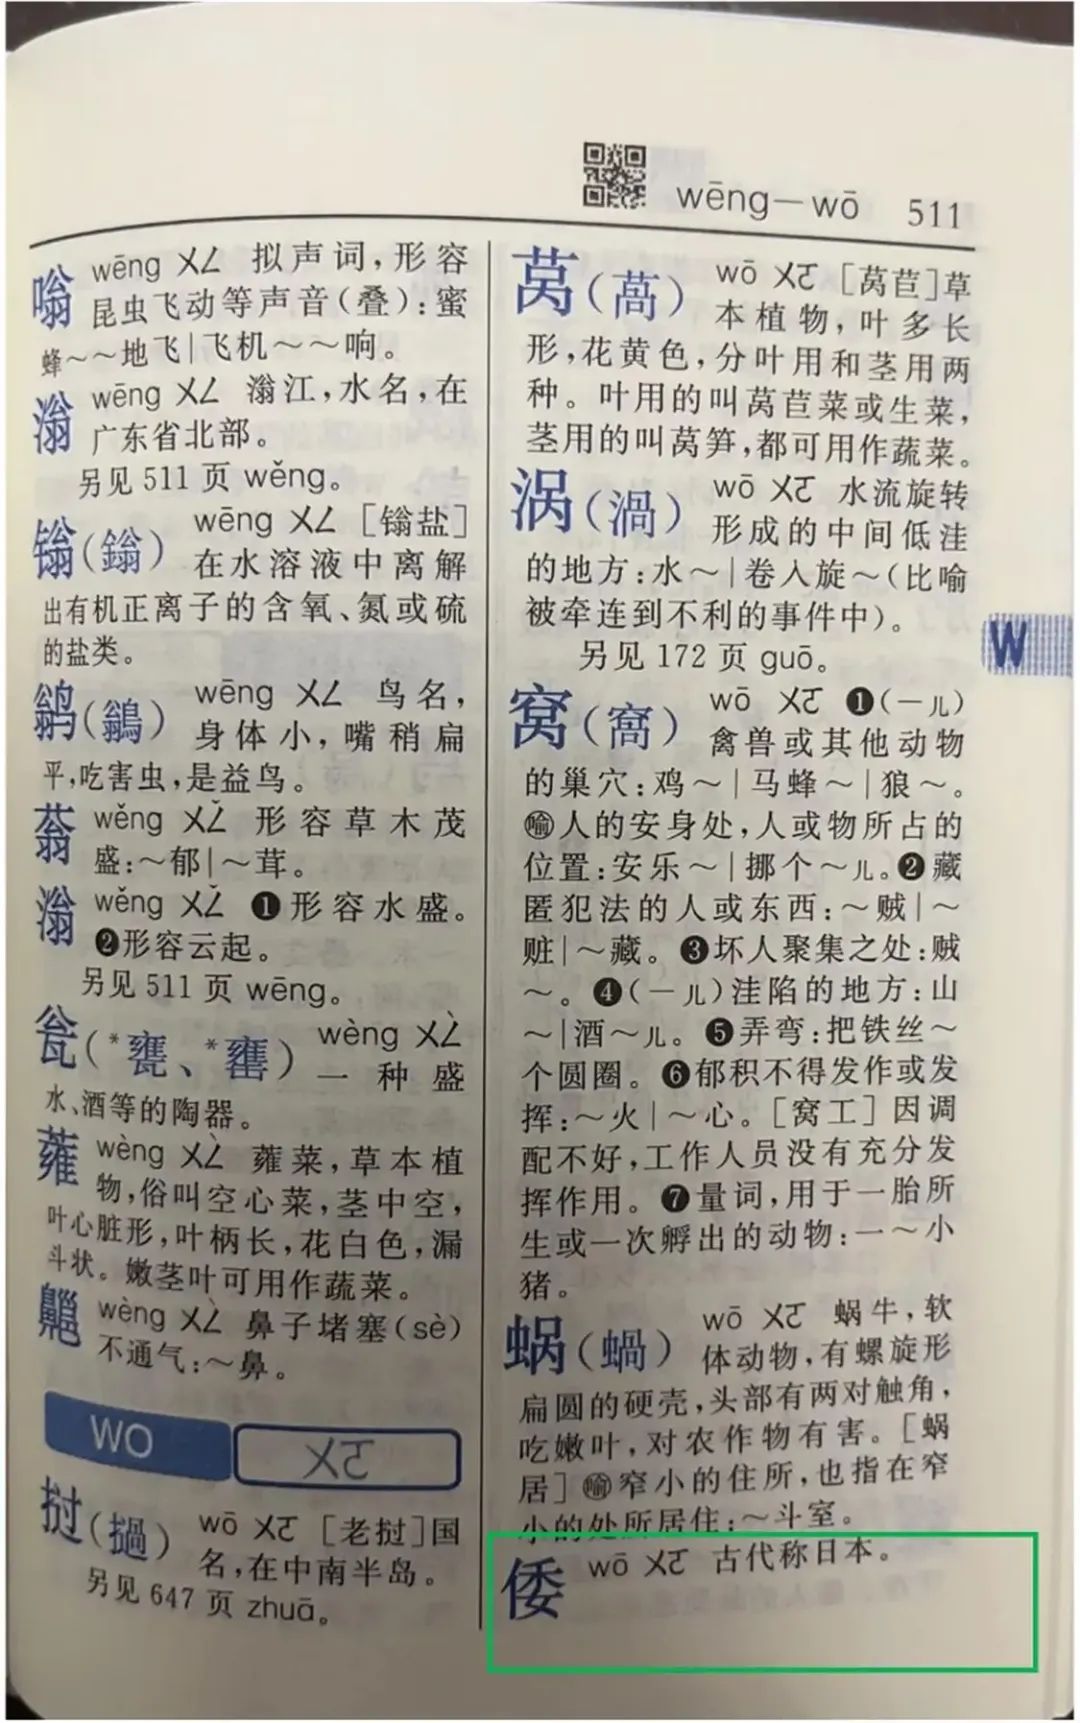 wēng—wō 511
嗡 wēng ㄨㄥ 拟声词，形容
昆虫飞动等声音(叠)：蜜
蜂～～地飞|飞机～～响。
滃 wēng ㄨㄥ 滃江，水名，在
广东省北部。
另见511页 wěng。
𬭩(鎓) wēng ㄨㄥ [𬭩盐]
在水溶液中离解
出有机正离子的含氧、氮或硫
的盐类。
鹟(鶲) wēng ㄨㄥ 鸟名，
身体小，嘴稍扁
平，吃害虫，是益鸟。
蓊 wěng ㄨㄥˇ 形容草木茂
盛：～郁|～茸。
滃 wěng ㄨㄥˇ ❶形容水盛。
❷形容云起。
另见511页 wēng。
瓮(*甕、*罋) wèng ㄨㄥˋ
一种盛
水、酒等的陶器。
蕹 wèng ㄨㄥˋ 蕹菜，草本植
物，俗叫空心菜，茎中空，
叶心脏形，叶柄长，花白色，漏
斗状。嫩茎叶可用作蔬菜。
齆 wèng ㄨㄥˋ 鼻子堵塞(sè)
不通气：～鼻。
WO ㄨㄛ
挝(撾) wō ㄨㄛ [老挝]国
名，在中南半岛。
另见647页 zhuā。
莴(萵) wō ㄨㄛ [莴苣]草
本植物，叶多长
形，花黄色，分叶用和茎用两
种。叶用的叫莴苣菜或生菜，
茎用的叫莴笋，都可用作蔬菜。
涡(渦) wō ㄨㄛ 水流旋转
形成的中间低洼
的地方：水～|卷入旋～(比喻
被牵连到不利的事件中)。
另见172页 guō。
窝(窩) wō ㄨㄛ ❶(一儿)
禽兽或其他动物
的巢穴：鸡～|马蜂～|狼～。
喻人的安身处，人或物所占的
位置：安乐～|挪个～儿。❷藏
匿犯法的人或东西：～贼|～
赃|～藏。❸坏人聚集之处：贼
～。❹(一儿)洼陷的地方：山
～|酒～儿。❺弄弯：把铁丝～
个圆圈。❻郁积不得发作或发
挥：～火|～心。[窝工]因调
配不好，工作人员没有充分发
挥作用。❼量词，用于一胎所
生或一次孵出的动物：一～小
猪。
蜗(蝸) wō ㄨㄛ 蜗牛，软
体动物，有螺旋形
扁圆的硬壳，头部有两对触角，
吃嫩叶，对农作物有害。[蜗
居]喻窄小的住所，也指在窄
小的处所居住：～斗室。
倭 wō ㄨㄛ 古代称日本。
W